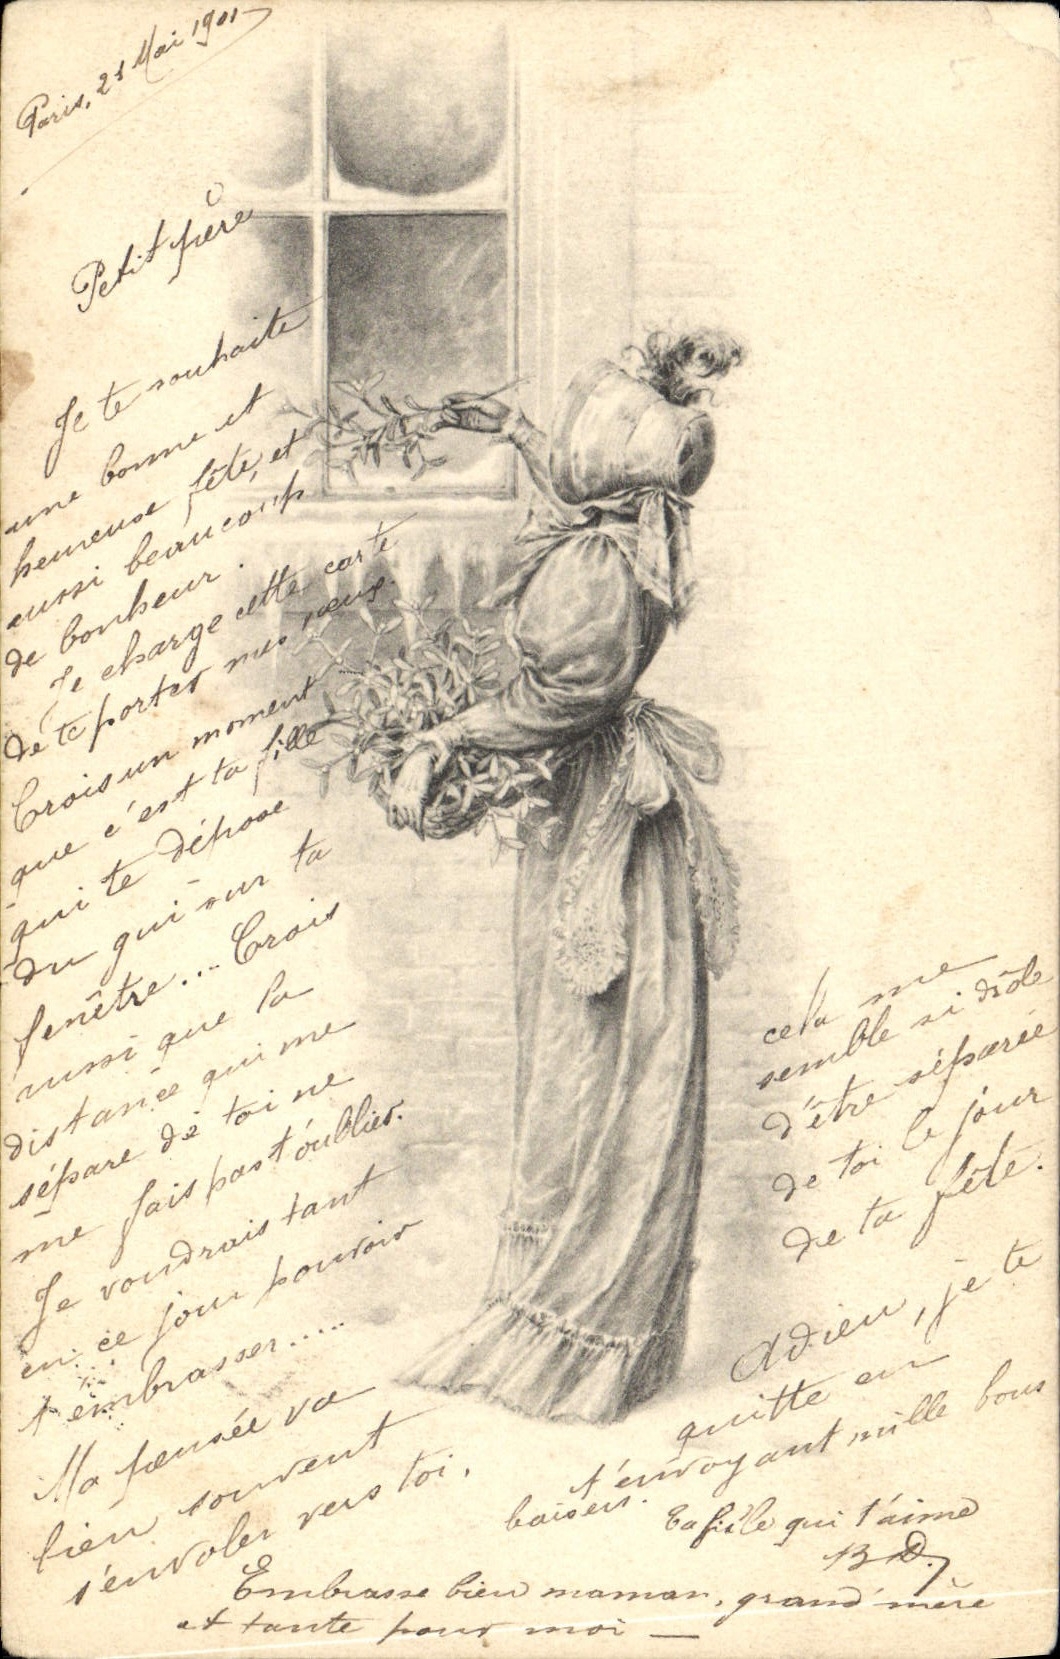 Paris, 21 Mai 1901
Petit père
Je te souhaite
une bonne et
heureuse fête, et
aussi beaucoup
de bonheur.
Je charge cette carte
de te porter mes vœux.
Crois un moment
que c'est ta fille
qui te dépose
du gui sur ta
fenêtre... Crois
aussi que la
distance qui me
sépare de toi ne
me fais pas t'oublier.
Je voudrais tant
en ce jour pouvoir
t'embrasser.....
Ma pensée va
bien souvent
s'envoler vers toi.
cela me
semble si drôle
d'être séparée
de toi le jour
de ta fête.
Adieu, je te
quitte en
t'envoyant mille bons
baisers.
Ta fille qui t'aime
B D.
Embrasse bien maman, grand'mère
et tante pour moi —